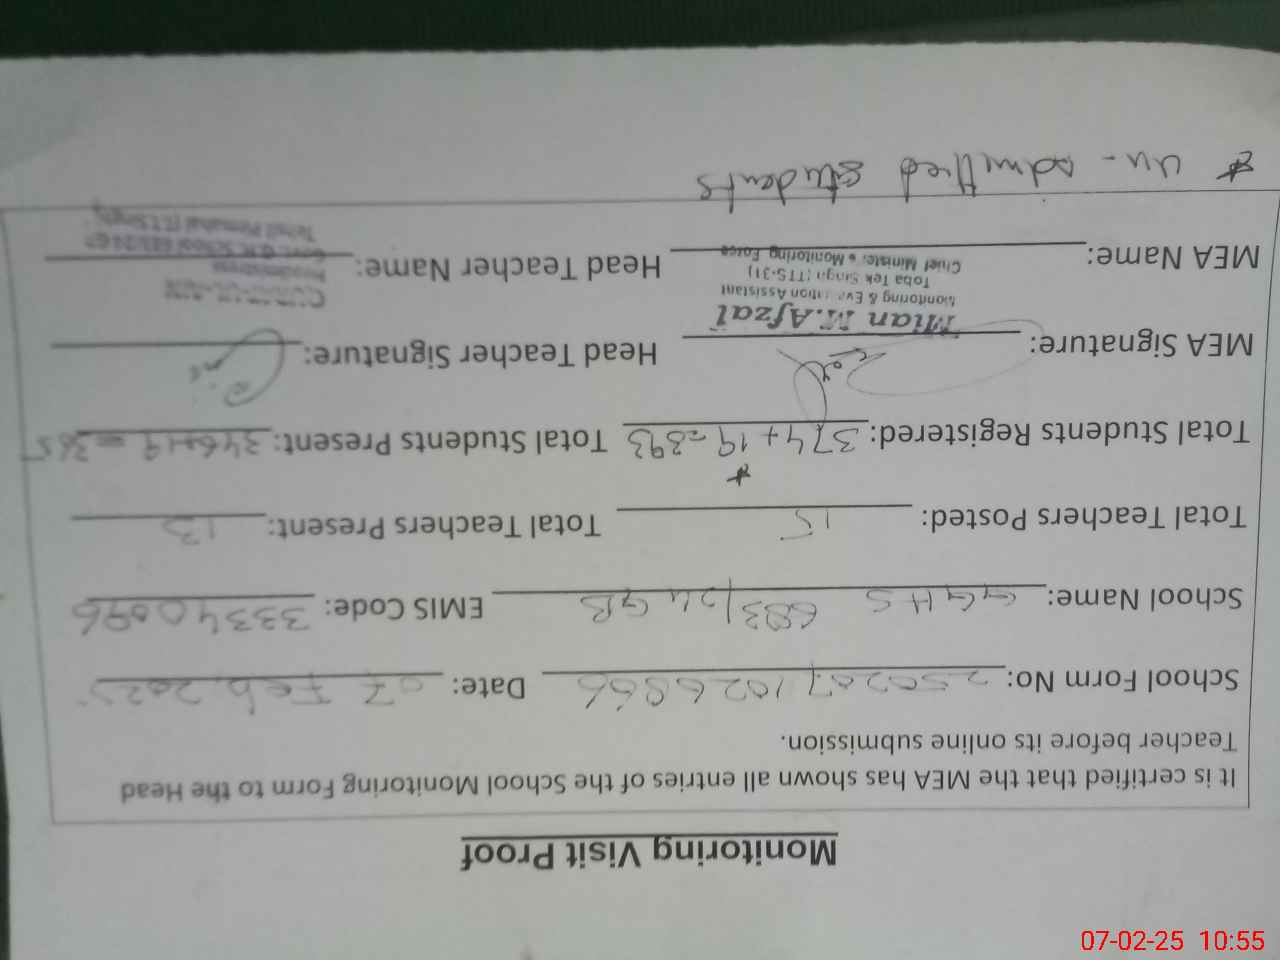 Monitoring Visit Proof
It is certified that the MEA has shown all entries of the School Monitoring Form to the Head
Teacher before its online submission.
School Form No: 2502071026866 Date: 07 Feb, 2025
School Name: GGHS 683/24 GB EMIS Code: 33340096
Total Teachers Posted: 15 Total Teachers Present: 13
*
Total Students Registered: 374+19=393 Total Students Present: 346+19=365
MEA Signature: Head Teacher Signature:
Mian M.Afzal
Monitoring & Evaluation Assistant
Toba Tek Singh (TTS-31)
Chief Minister's Monitoring Force
MEA Name: Head Teacher Name:
Headmistress
Govt. G.H. School 683/24 GB
Tehsil Pirmahal (T.T.Singh)
* un-admitted students
07-02-25 10:55